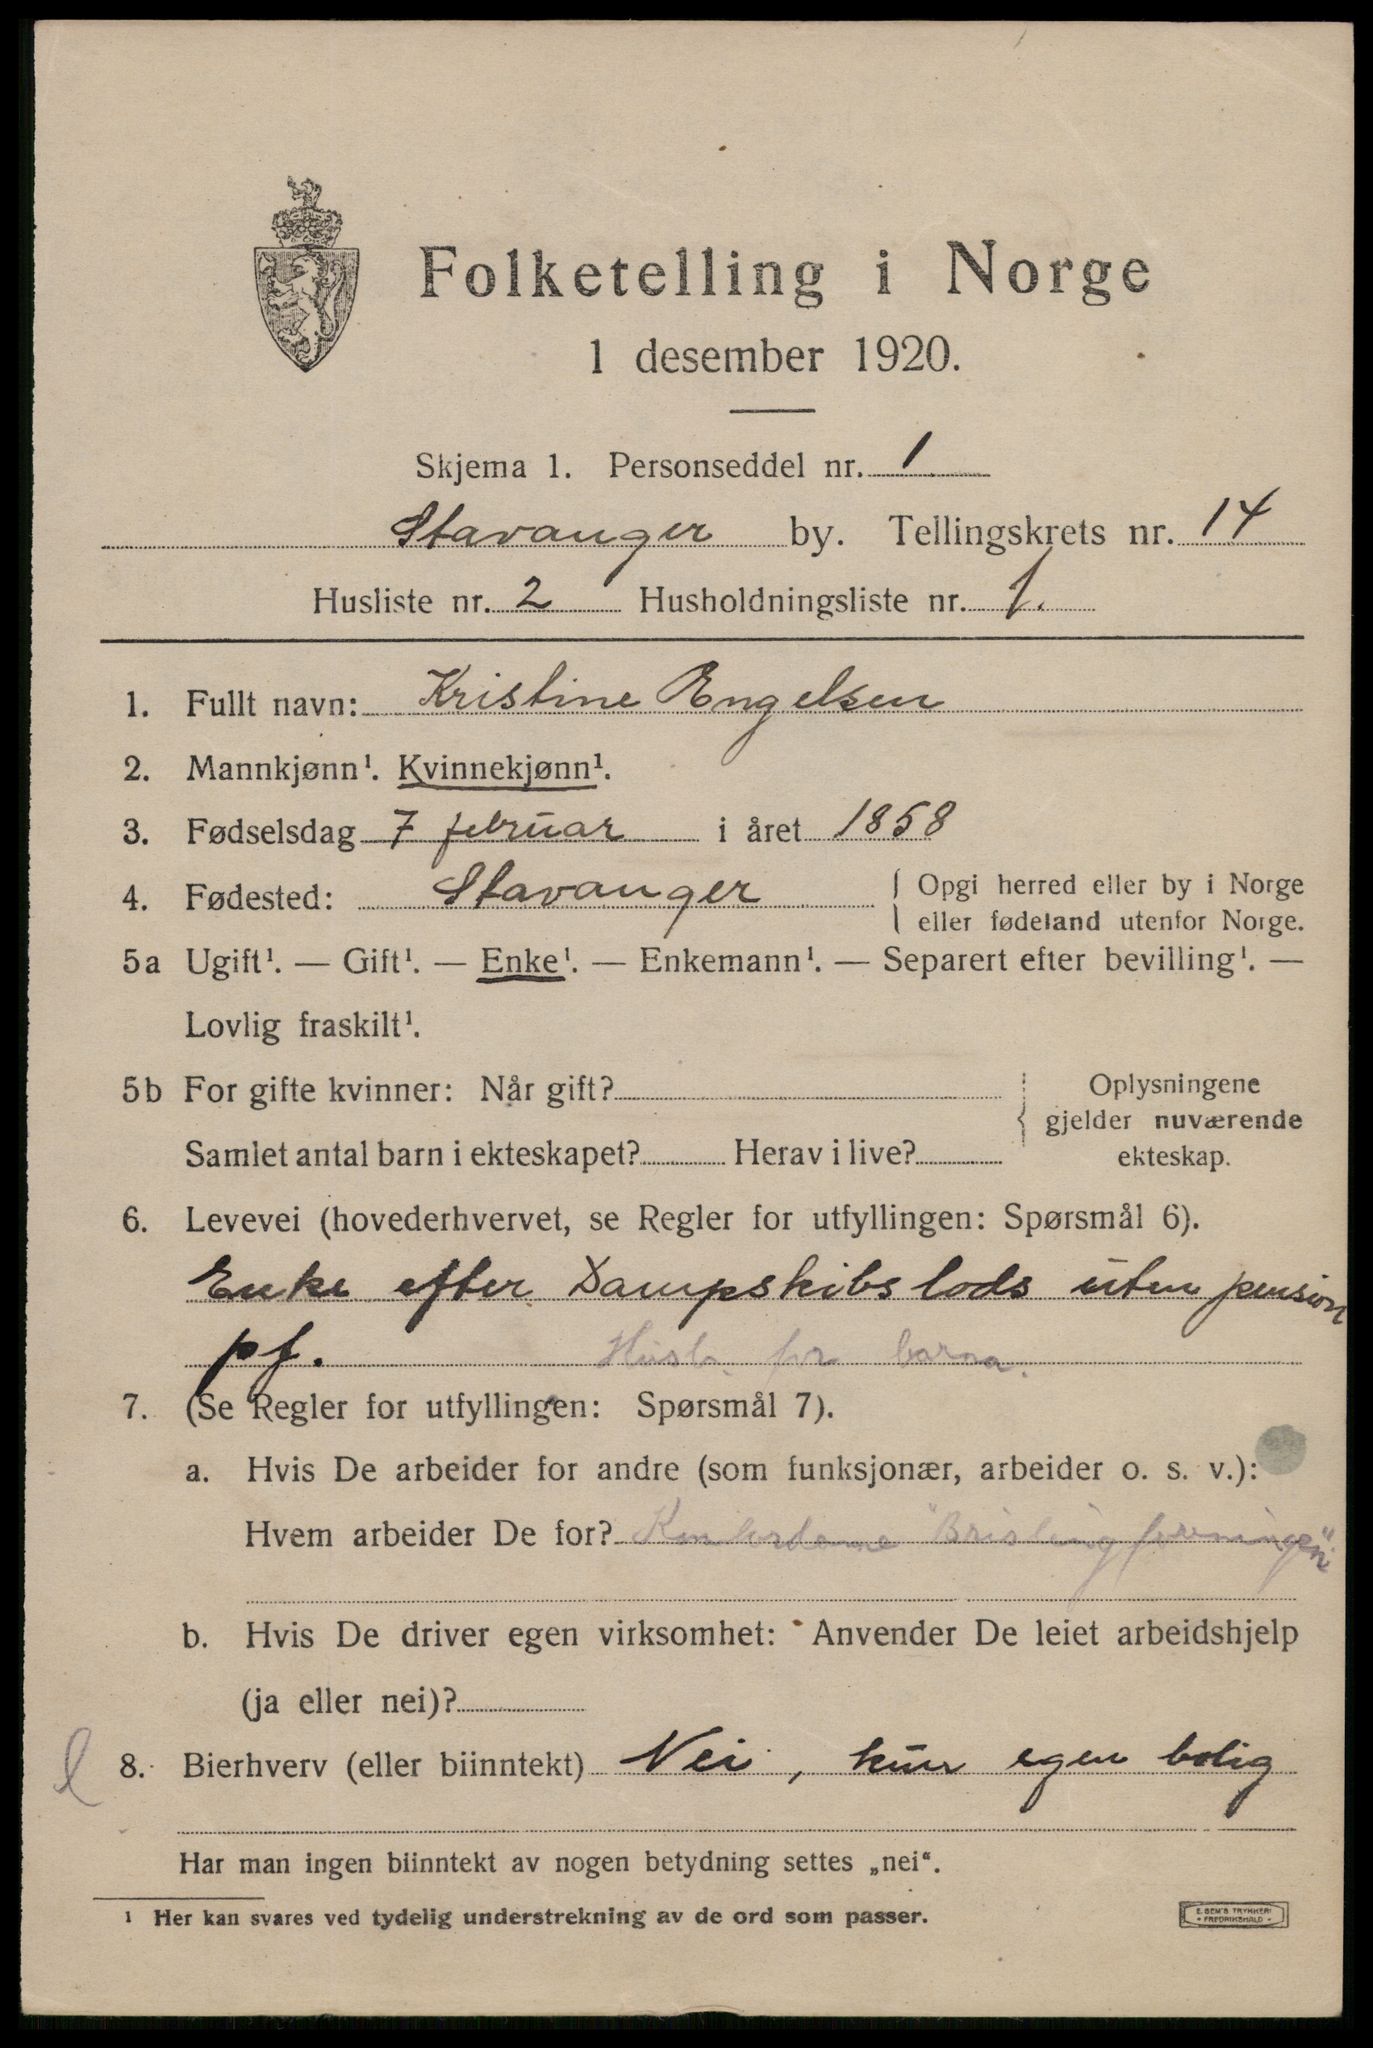 Folketelling i Norge
1 desember 1920.
Skjema 1. Personseddel nr. 1
Stavanger by. Tellingskrets nr. 14
Husliste nr. 2 Husholdningsliste nr. 1.
1. Fullt navn: Kristine Engelsen
2. Mannkjønn¹. Kvinnekjønn¹.
3. Fødselsdag 7 februar i året 1858
4. Fødested: Stavanger { Opgi herred eller by i Norge
eller fødeland utenfor Norge.
5a Ugift¹. — Gift¹. — Enke¹. — Enkemann¹. — Separert efter bevilling¹. —
Lovlig fraskilt¹.
5b For gifte kvinner: Når gift? Oplysningene
gjelder nuværende
Samlet antal barn i ekteskapet? Herav i live? ekteskap.
6. Levevei (hovederhvervet, se Regler for utfyllingen: Spørsmål 6).
Enke efter Dampskibslods uten pension
pf. Husb. for barna.
7. (Se Regler for utfyllingen: Spørsmål 7).
a. Hvis De arbeider for andre (som funksjonær, arbeider o. s. v.):
Hvem arbeider De for? Kontordame "Brislingforeningen".
b. Hvis De driver egen virksomhet: Anvender De leiet arbeidshjelp
(ja eller nei)?
8. Bierhverv (eller biinntekt) Nei, kun egen bolig
Har man ingen biinntekt av nogen betydning settes „nei“.
1 Her kan svares ved tydelig understrekning av de ord som passer.
E. SEM'S TRYKKERI
• FREDRIKSHALD •